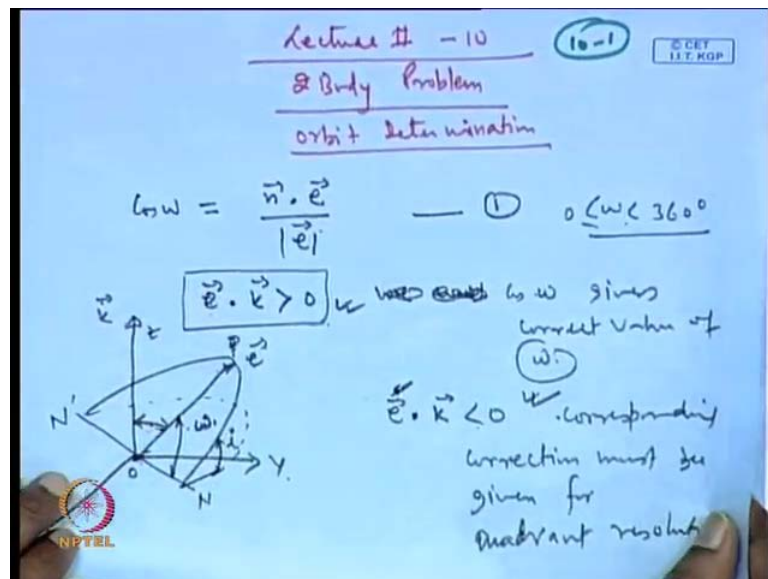 Lecture II - 10
10-1
© CET
I.I.T. KGP
2 Body Problem
orbit determination
Cos ω = n⃗ · e⃗ / |e⃗| — ① 0 ≤ ω < 360°
e⃗ · k⃗ > 0 cos ω gives
correct value of
ω.
k⃗ z
P e⃗
N' ω i
O Y
N
e⃗ · k⃗ < 0 corresponding
correction must be
given for
quadrant
NPTEL